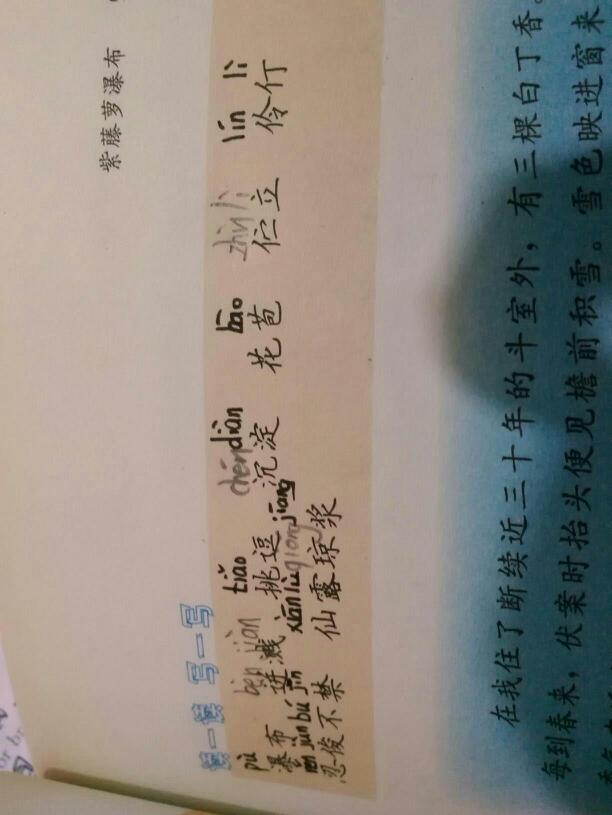 紫藤萝瀑布
读一读 写一写
pù bèn jiàn tiǎo chén diàn bāo zhù lì lín lì
瀑布 迸溅 挑逗 沉淀 花苞 伫立 伶仃
jùn bú jīn xiān lù qióng jiāng
忍俊不禁 仙露琼浆
在我住了断续近三十年的斗室外，有三棵白丁香。
每到春来，伏案时抬头便见檐前积雪。雪色映进窗来